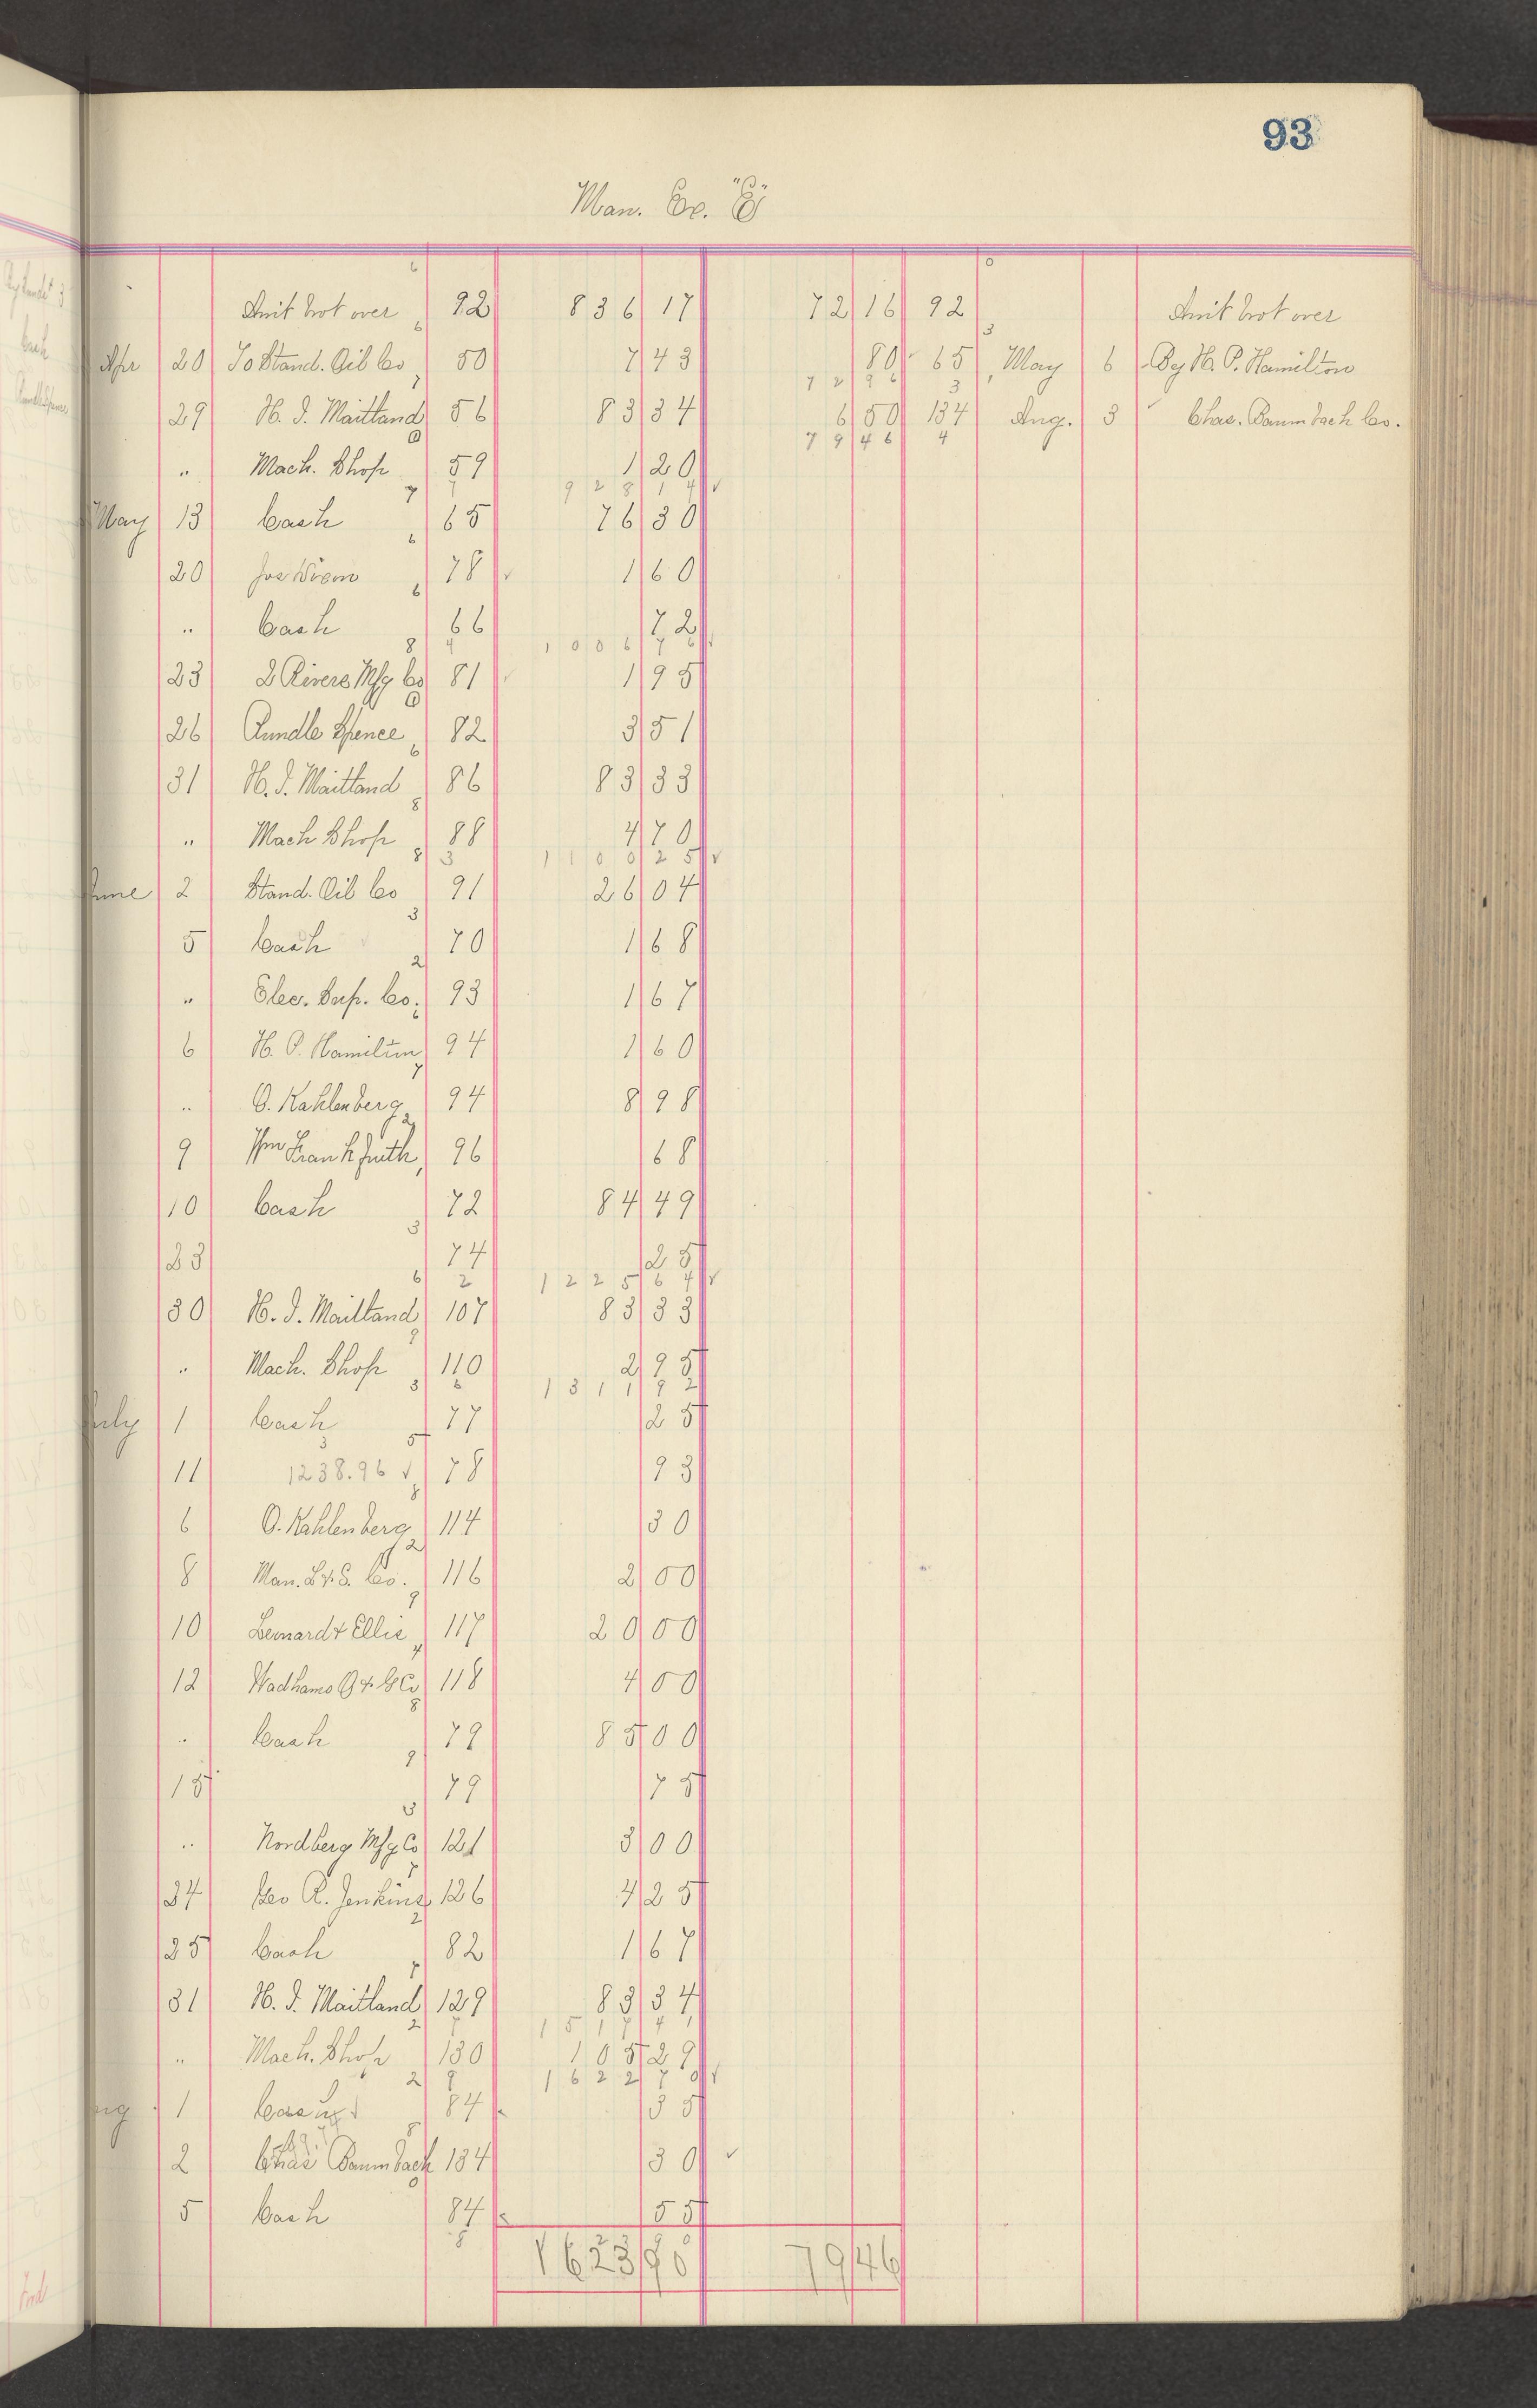 93
Man. Ex. "B"
Amt brot over 92 836 17 72 16 92 Amt brot over
Apr 20 To Stand. Oil Co 50 7 43 80 65 May 6 By H. P. Hamilton
7 2 9 6
29 H. J. Maitland 56 83 34 6 50 134 Aug. 3 Chas. Baumbach Co.
79 46
" Mach. Shop 59 1 20
928 14
May 13 Cash 65 76 30
20 78 1 60
" Cash 66 72
1006 76
23 2 Rivers Mfg Co 81 1 95
26 Rundle Spence 82 3 51
31 H. J. Maitland 86 83 33
" Mach Shop 88 4 70
1100 25
June 2 Stand. Oil Co 91 26 04
5 Cash 70 1 68
" Elec. Sup. Co. 93 1 67
6 H. P. Hamilton 94 1 60
" O. Kahlenberg 94 8 98
9 Wm Frankfurth 96 68
10 Cash 72 84 49
23 74 25
1225 64
30 H. J. Maitland 107 83 33
" Mach. Shop 110 2 95
1311 92
July 1 Cash 77 25
11 1238.96 78 93
6 O. Kahlenberg 114 30
8 Man. &. Co. 116 2 00
10 Leonardt Ellis 117 20 00
12 Wadhams O & G Co 118 4 00
" Cash 79 85 00
15 79 75
" Nordberg Mfg Co 121 3 00
24 Geo R. Jenkins 126 4 25
25 Cash 82 1 67
31 H. J. Maitland 129 83 34
1517 41
" Mach. Shop 130 105 29
1622 70
1 Cash 84 35
2 Chas Baumbach 134 30
5 Cash 84 55
1623 90 79 46